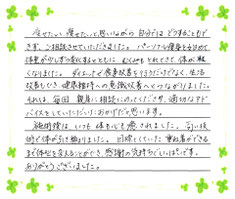 痩せたい、痩せたいと思いながら自分ではどうすることもで
きず、ご相談させていただきました。パーソナル痩身を始めて
体重が少しずつ落ちるとともに、むくみもとれてきて体が軽
くなりました。ダイエットで食事改善を行うだけでなく、生活
改善もでき、健康維持への意識改善へとつながりました。
それは、毎回親身に相談にのってくださり、適切なアド
バイスをしていただいたおかげだと思います。
施術後は、いつも体も心も癒されました。短い時
間で体が引き締まりました。目標としていた重ね着ができる
まで体型を変えることができ、感謝の気持ちでいっぱいです。
ありがとうございました。